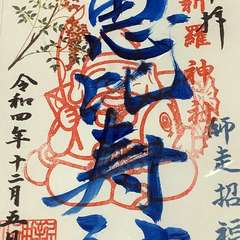 奉拝
新羅神社
師走招福
恵比寿神
令和四年十二月五日